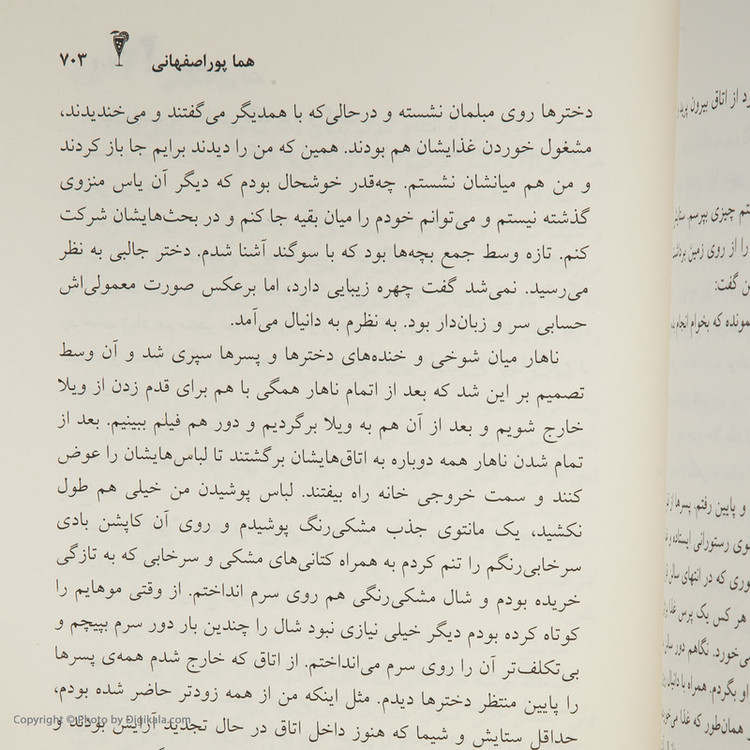 هما پوراصفهانی ۷۰۳
دخترها روی مبلمان نشسته و درحالی‌که با همدیگر می‌گفتند و می‌خندیدند،
مشغول خوردن غذایشان هم بودند. همین که من را دیدند برایم جا باز کردند
و من هم میانشان نشستم. چه‌قدر خوشحال بودم که دیگر آن یاس منزوی
گذشته نیستم و می‌توانم خودم را میان بقیه جا کنم و در بحث‌هایشان شرکت
کنم. تازه وسط جمع بچه‌ها بود که با سوگند آشنا شدم. دختر جالبی به نظر
می‌رسید. نمی‌شد گفت چهره زیبایی دارد، اما برعکس صورت معمولی‌اش
حسابی سر و زبان‌دار بود. به نظرم به دانیال می‌آمد.
ناهار میان شوخی و خنده‌های دخترها و پسرها سپری شد و آن وسط
تصمیم بر این شد که بعد از اتمام ناهار همگی با هم برای قدم زدن از ویلا
خارج شویم و بعد از آن هم به ویلا برگردیم و دور هم فیلم ببینیم. بعد از
تمام شدن ناهار همه دوباره به اتاق‌هایشان برگشتند تا لباس‌هایشان را عوض
کنند و سمت خروجی خانه راه بیفتند. لباس پوشیدن من خیلی هم طول
نکشید، یک مانتوی جذب مشکی‌رنگ پوشیدم و روی آن کاپشن بادی
سرخابی‌رنگم را تنم کردم به همراه کتانی‌های مشکی و سرخابی که به تازگی
خریده بودم و شال مشکی‌رنگی هم روی سرم انداختم. از وقتی موهایم را
کوتاه کرده بودم دیگر خیلی نیازی نبود شال را چندین بار دور سرم بپیچم و
بی‌تکلف‌تر آن را روی سرم می‌انداختم. از اتاق که خارج شدم همه‌ی پسرها
را پایین منتظر دخترها دیدم. مثل اینکه من از همه زودتر حاضر شده بودم،
حداقل ستایش و شیما که هنوز داخل اتاق در حال تجدید آرایش بودند و
Copyright © Photo by Digikala.com
رد از اتاق بیرون
چیزی بپرسم،
را از روی زمین
گفت:
مونده که بخوام انجام
و پایین رفتم. پسرها
سوی رستورانی ایستاده و
که در انتهای سالن
هر کس یک پرس غذا
می‌خورد. نگاهم دور
او بگردم. همراه با دانیال
همان‌طور که غذا